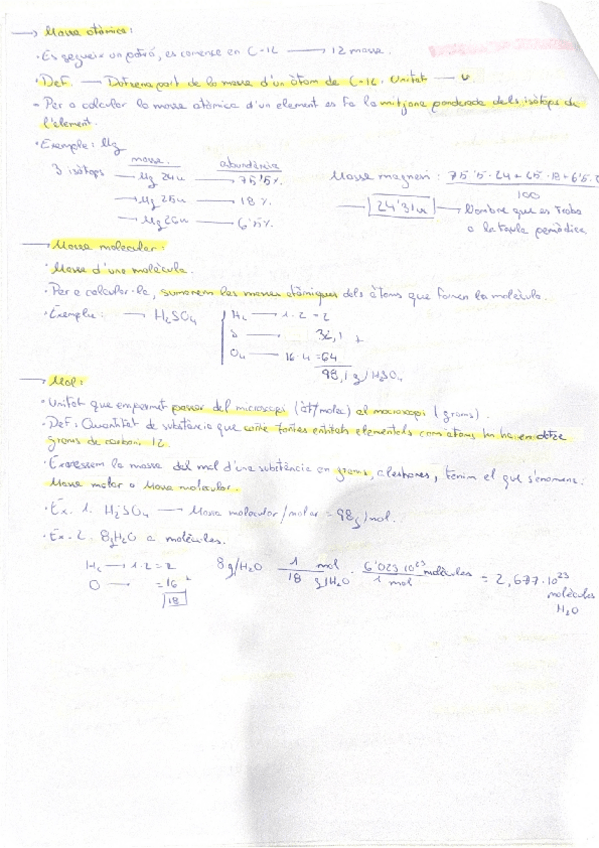 → Massa atòmica:
· Es segueix un patró, es comença en C-12 → 12 massa.
· Def. → Dotzena part de la massa d'un àtom de C-12. Unitat → u.
- Per a calcular la massa atòmica d'un element es fa la mitjana ponderada dels isòtops de
l'element.
· Exemple: Mg
massa. abundància
3 isòtops → Mg 24u → 75'5%.
→ Mg 25u → 18%
→ Mg 26u → 6'5%
Massa magnesi: 75'5·24 + 25·18 + 6'5·2
100
24'31u → Nombre que es troba
a la taula periòdica
→ Massa molecular.
· Massa d'una molècula.
· Per a calcular-la, sumarem les masses atòmiques dels àtoms que formen la molècula.
· Exemple: → H2SO4
H2 → 1·2 = 2
S → 32,1 +
O4 → 16·4 = 64
98,1 g/H2SO4
→ Mol:
· Unitat que em permet passar del microscopi (àt/molec) al macroscopi (grams).
· Def: Quantitat de substància que conté tantes entitats elementals com àtoms hi ha en dotze
grams de carboni 12.
· Expressem la massa del mol d'una substància en grams, aleshores, tenim el que s'anomena:
Massa molar o Massa molecular.
· Ex. 1. H2SO4 → Massa molecular/molar = 98g/mol.
· Ex. 2. 8gH2O a molècules.
H2 → 1·2 = 2
O → = 16 +
18
8g/H2O · 1 mol / 18 g/H2O · 6'023·10^23 molècules / 1 mol = 2,677·10^23
molècules
H2O